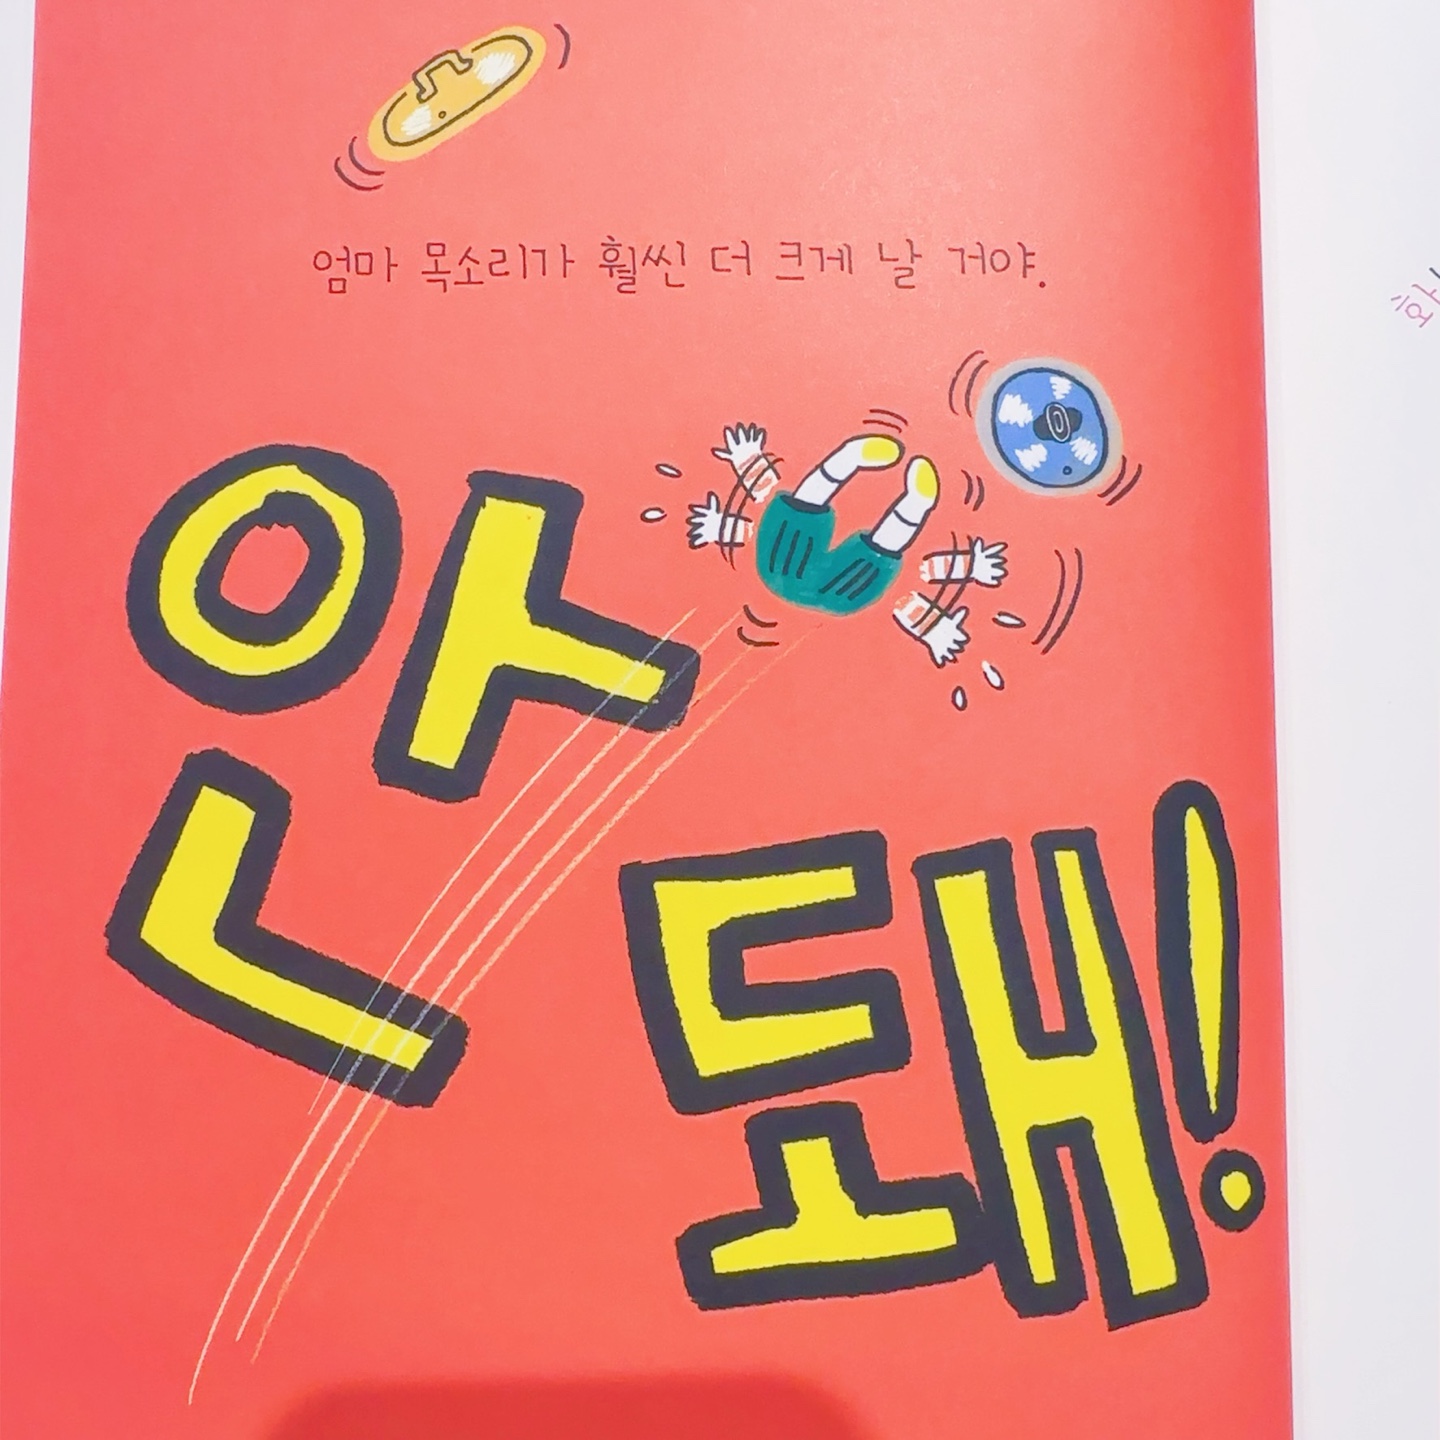 엄마 목소리가 훨씬 더 크게 날 거야.
안
돼!